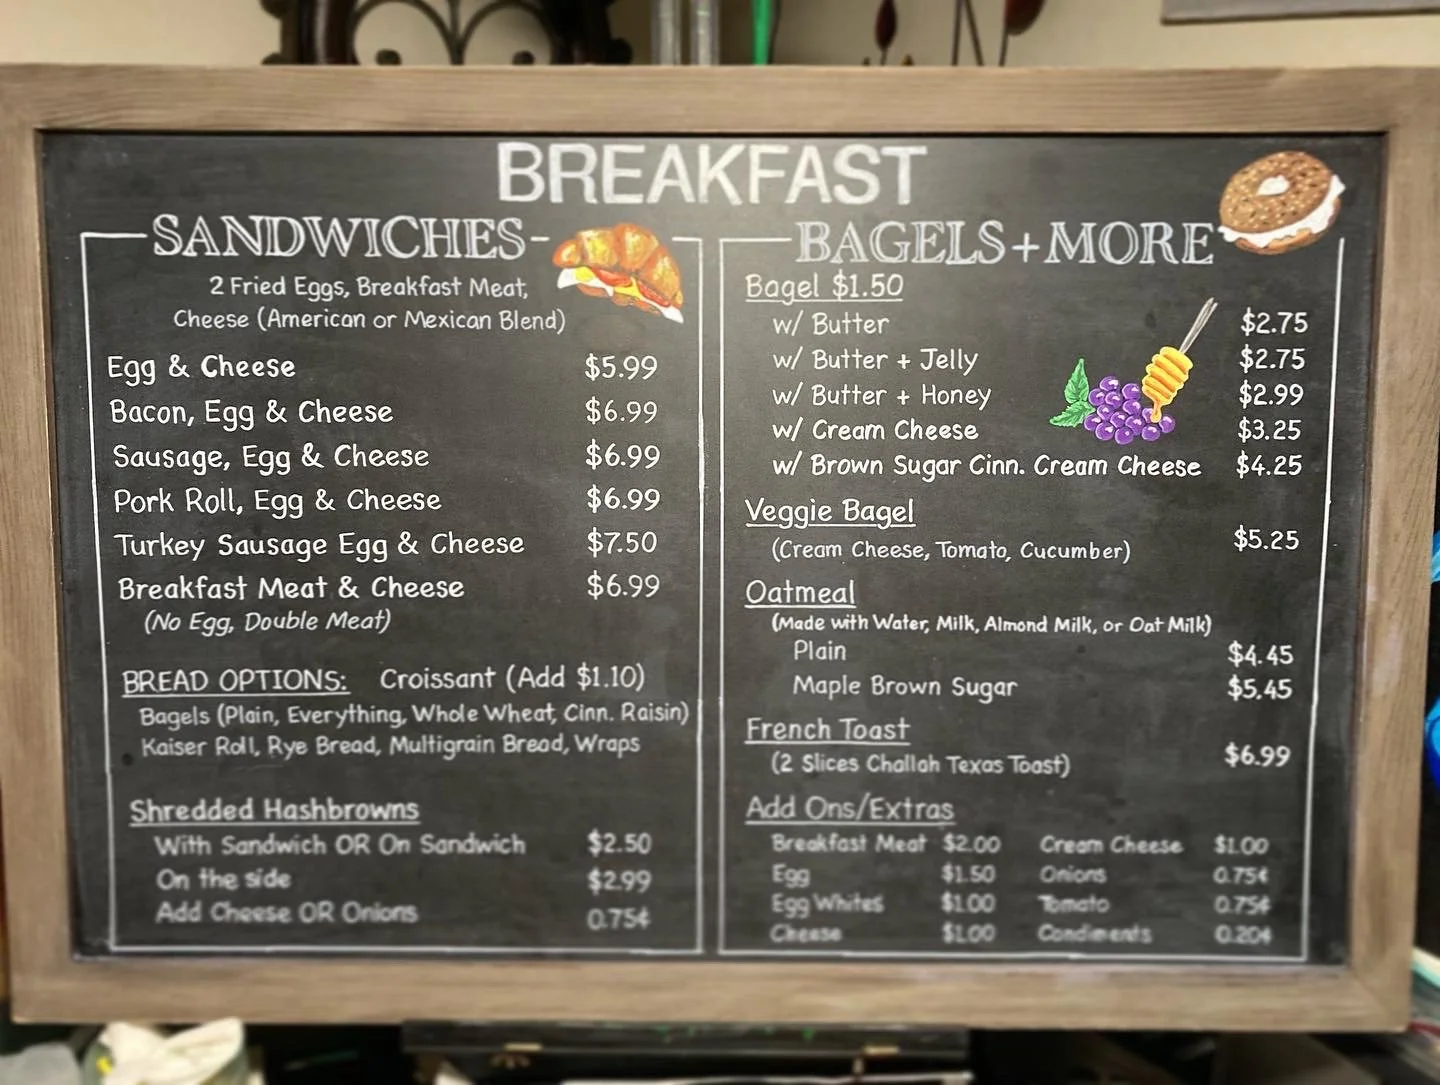 BREAKFAST
SANDWICHES
2 Fried Eggs, Breakfast Meat,
Cheese (American or Mexican Blend)
Egg & Cheese $5.99
Bacon, Egg & Cheese $6.99
Sausage, Egg & Cheese $6.99
Pork Roll, Egg & Cheese $6.99
Turkey Sausage Egg & Cheese $7.50
Breakfast Meat & Cheese $6.99
(No Egg, Double Meat)
BREAD OPTIONS: Croissant (Add $1.10)
Bagels (Plain, Everything, Whole Wheat, Cinn. Raisin)
Kaiser Roll, Rye Bread, Multigrain Bread, Wraps
Shredded Hashbrowns
With Sandwich OR On Sandwich $2.50
On the side $2.99
Add Cheese OR Onions 0.75¢
BAGELS + MORE
Bagel $1.50
w/ Butter $2.75
w/ Butter + Jelly $2.75
w/ Butter + Honey $2.99
w/ Cream Cheese $3.25
w/ Brown Sugar Cinn. Cream Cheese $4.25
Veggie Bagel
(Cream Cheese, Tomato, Cucumber) $5.25
Oatmeal
(Made with Water, Milk, Almond Milk, or Oat Milk)
Plain $4.45
Maple Brown Sugar $5.45
French Toast
(2 Slices Challah Texas Toast) $6.99
Add Ons/Extras
Breakfast Meat $2.00 Cream Cheese $1.00
Egg $1.50 Onions 0.75¢
Egg Whites $1.00 Tomato 0.75¢
Cheese $1.00 Condiments 0.20¢